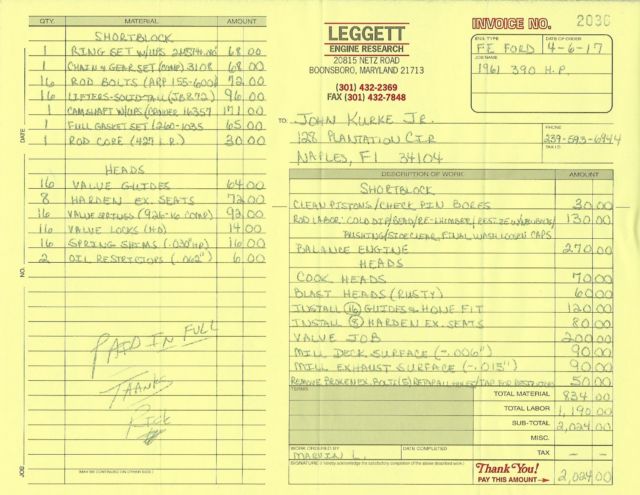 QTY. MATERIAL AMOUNT
SHORTBLOCK
1 RING SET W/UPS 68.00
1 CHAIN & GEAR SET (COMP) 3108 68.00
16 ROD BOLTS (ARP 155-6001) 72.00
16 LIFTERS-SOLID-TALL (JBR72) 96.00
1 CAMSHAFT W/UPS 16357 171.00
1 FULL GASKET SET (260-1035 65.00
1 ROD CORE (427 L.R.) 30.00
HEADS
16 VALVE GUIDES 64.00
8 HARDEN EX. SEATS 72.00
16 VALVE SPRINGS (926-16 COMP) 92.00
16 VALVE LOCKS (HD) 14.00
16 SPRING SHIMS (.030" HD) 16.00
2 OIL RESTRICTORS (.062") 6.00
PAID IN FULL
THANKS
RICK
DATE
NO.
JOB
(MAY BE CONTINUED ON OTHER SIDE)
LEGGETT
ENGINE RESEARCH
20815 NETZ ROAD
BOONSBORO, MARYLAND 21713
(301) 432-2369
FAX (301) 432-7848
INVOICE NO. 2036
ENG. TYPE DATE OF ORDER
FE FORD 4-6-17
JOB NAME
1961 390 H.P.
TO: JOHN KURKE JR.
128 PLANTATION CIR
NAPLES, Fl 34104
PHONE
239-593-6944
TAX I.D.
DESCRIPTION OF WORK AMOUNT
SHORTBLOCK
CLEAN PISTONS/CHECK PIN BORES 30.00
ROD LABOR: COLD DIP/BEAD/RE-NUMBER, RESIZE W/NEW BOLTS 130.00
BUSHING/SIDE CLEAR, FINAL WASH CAPS
BALANCE ENGINE 270.00
HEADS
COOK HEADS 70.00
BLAST HEADS (RUSTY) 60.00
INSTALL (16) GUIDES & HONE FIT 120.00
INSTALL (8) HARDEN EX. SEATS 80.00
VALVE JOB 200.00
MILL DECK SURFACE (-.006") 90.00
MILL EXHAUST SURFACE (-.015") 90.00
REMOVE BROKEN EX. BOLTS (5) RETAP ALL /TAP FOR RESTRICTORS 50.00
TERMS
TOTAL MATERIAL 834.00
TOTAL LABOR 1,190.00
SUB-TOTAL 2,024.00
MISC.
WORK ORDERED BY DATE COMPLETED
MARVIN L. TAX — —
SIGNATURE (I hereby acknowledge the satisfactory completion of the above described work.)
Thank You!
PAY THIS AMOUNT 2,024.00